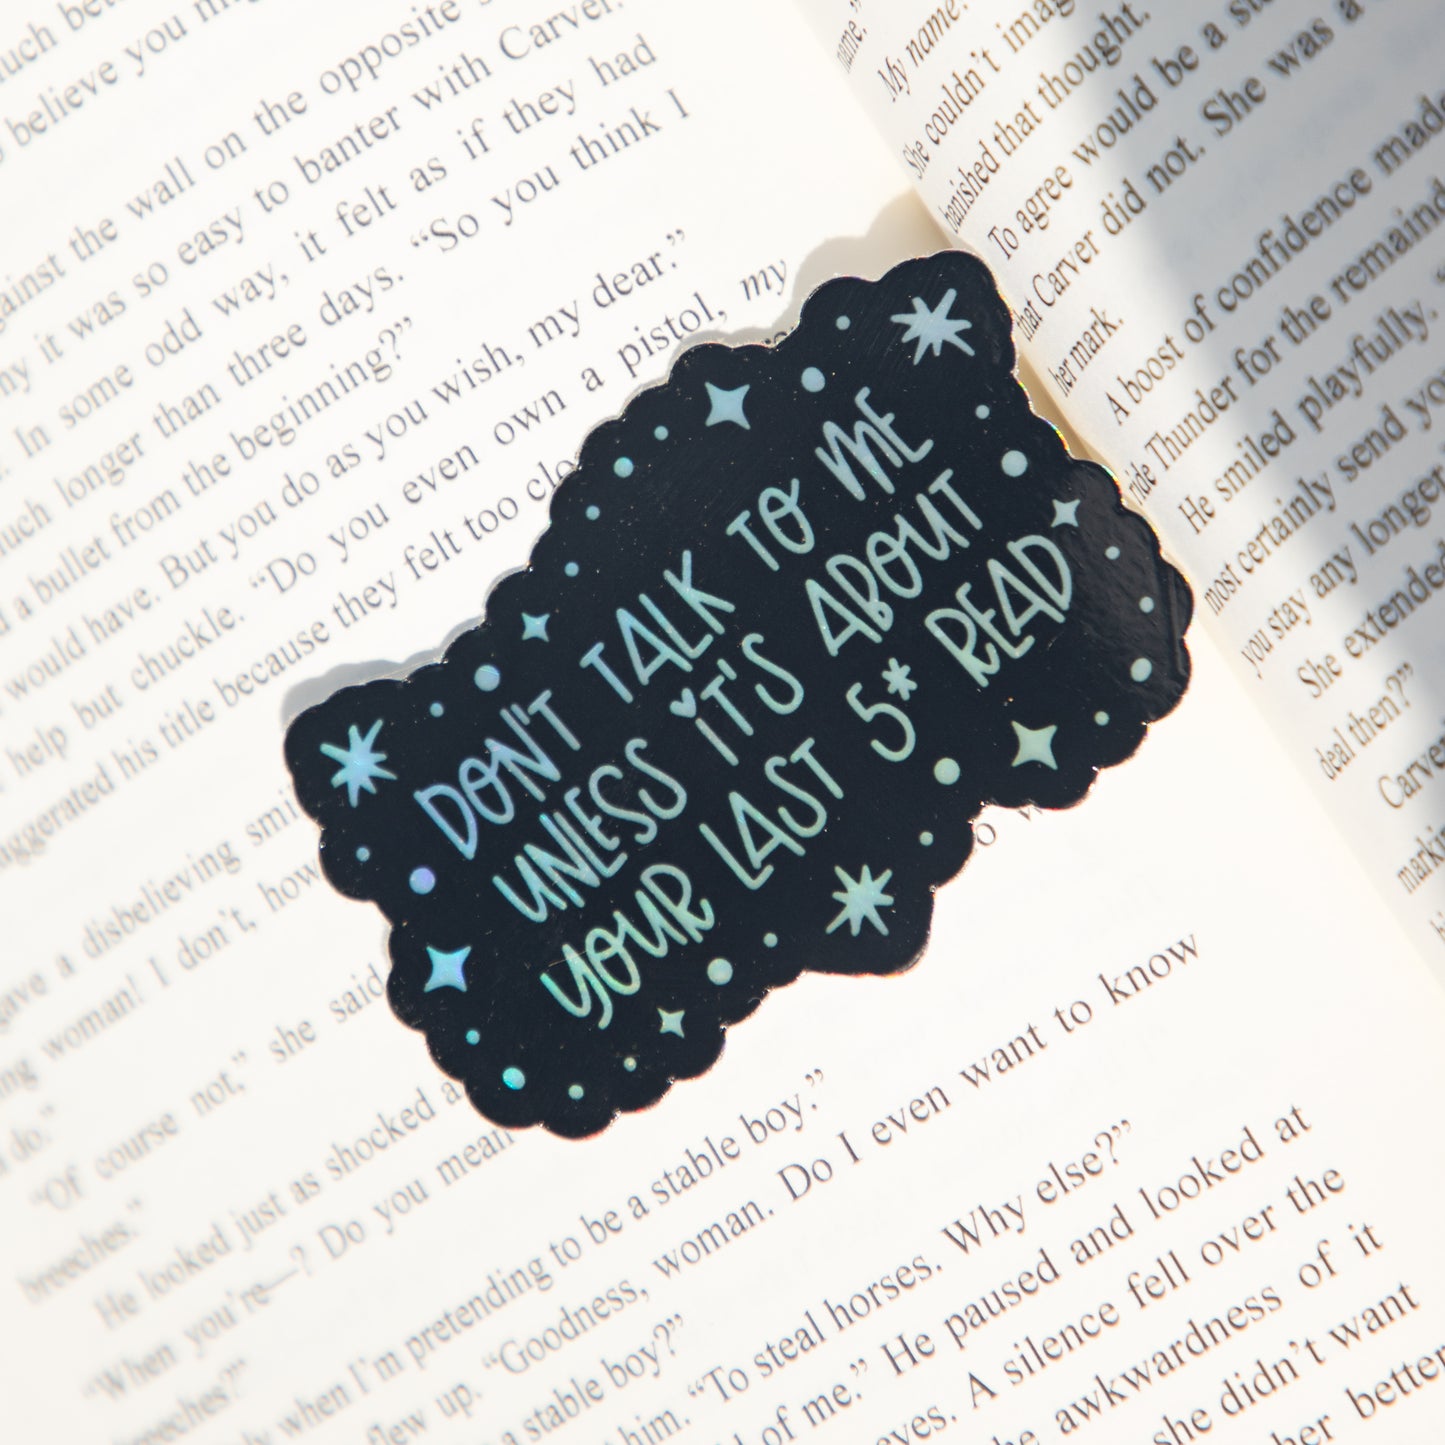 uch bet
believe you mig
gainst the wall on the opposite
y it was so easy to banter with Carver.
. In some odd way, it felt as if they had
uch longer than three days. “So you think I
d a bullet from the beginning?”
would have. But you do as you wish, my dear.”
help but chuckle. “Do you even own a pistol, my
aggerated his title because they felt too clo
DON'T TALK TO ME
UNLESS IT'S ABOUT
YOUR LAST 5* READ
gave a disbelieving smi
ing woman! I don’t, how
do.”
“Of course not,” she said
breeches.”
He looked just as shocked a
“When you’re—? Do you mean
breeches?”
when I’m pretending to be a stable boy.”
flew up. “Goodness, woman. Do I even want to know
a stable boy?”
him. “To steal horses. Why else?”
of me.” He paused and looked at
eyes. A silence fell over the
he awkwardness of it
she didn’t want
her better
name,”
My name.
She couldn’t imag
banished that thought.
To agree would be a st
that Carver did not. She was a
her mark.
A boost of confidence made
ride Thunder for the remaind
He smiled playfully.
most certainly send yo
you stay any longer
She extended
deal then?”
Carver
marking